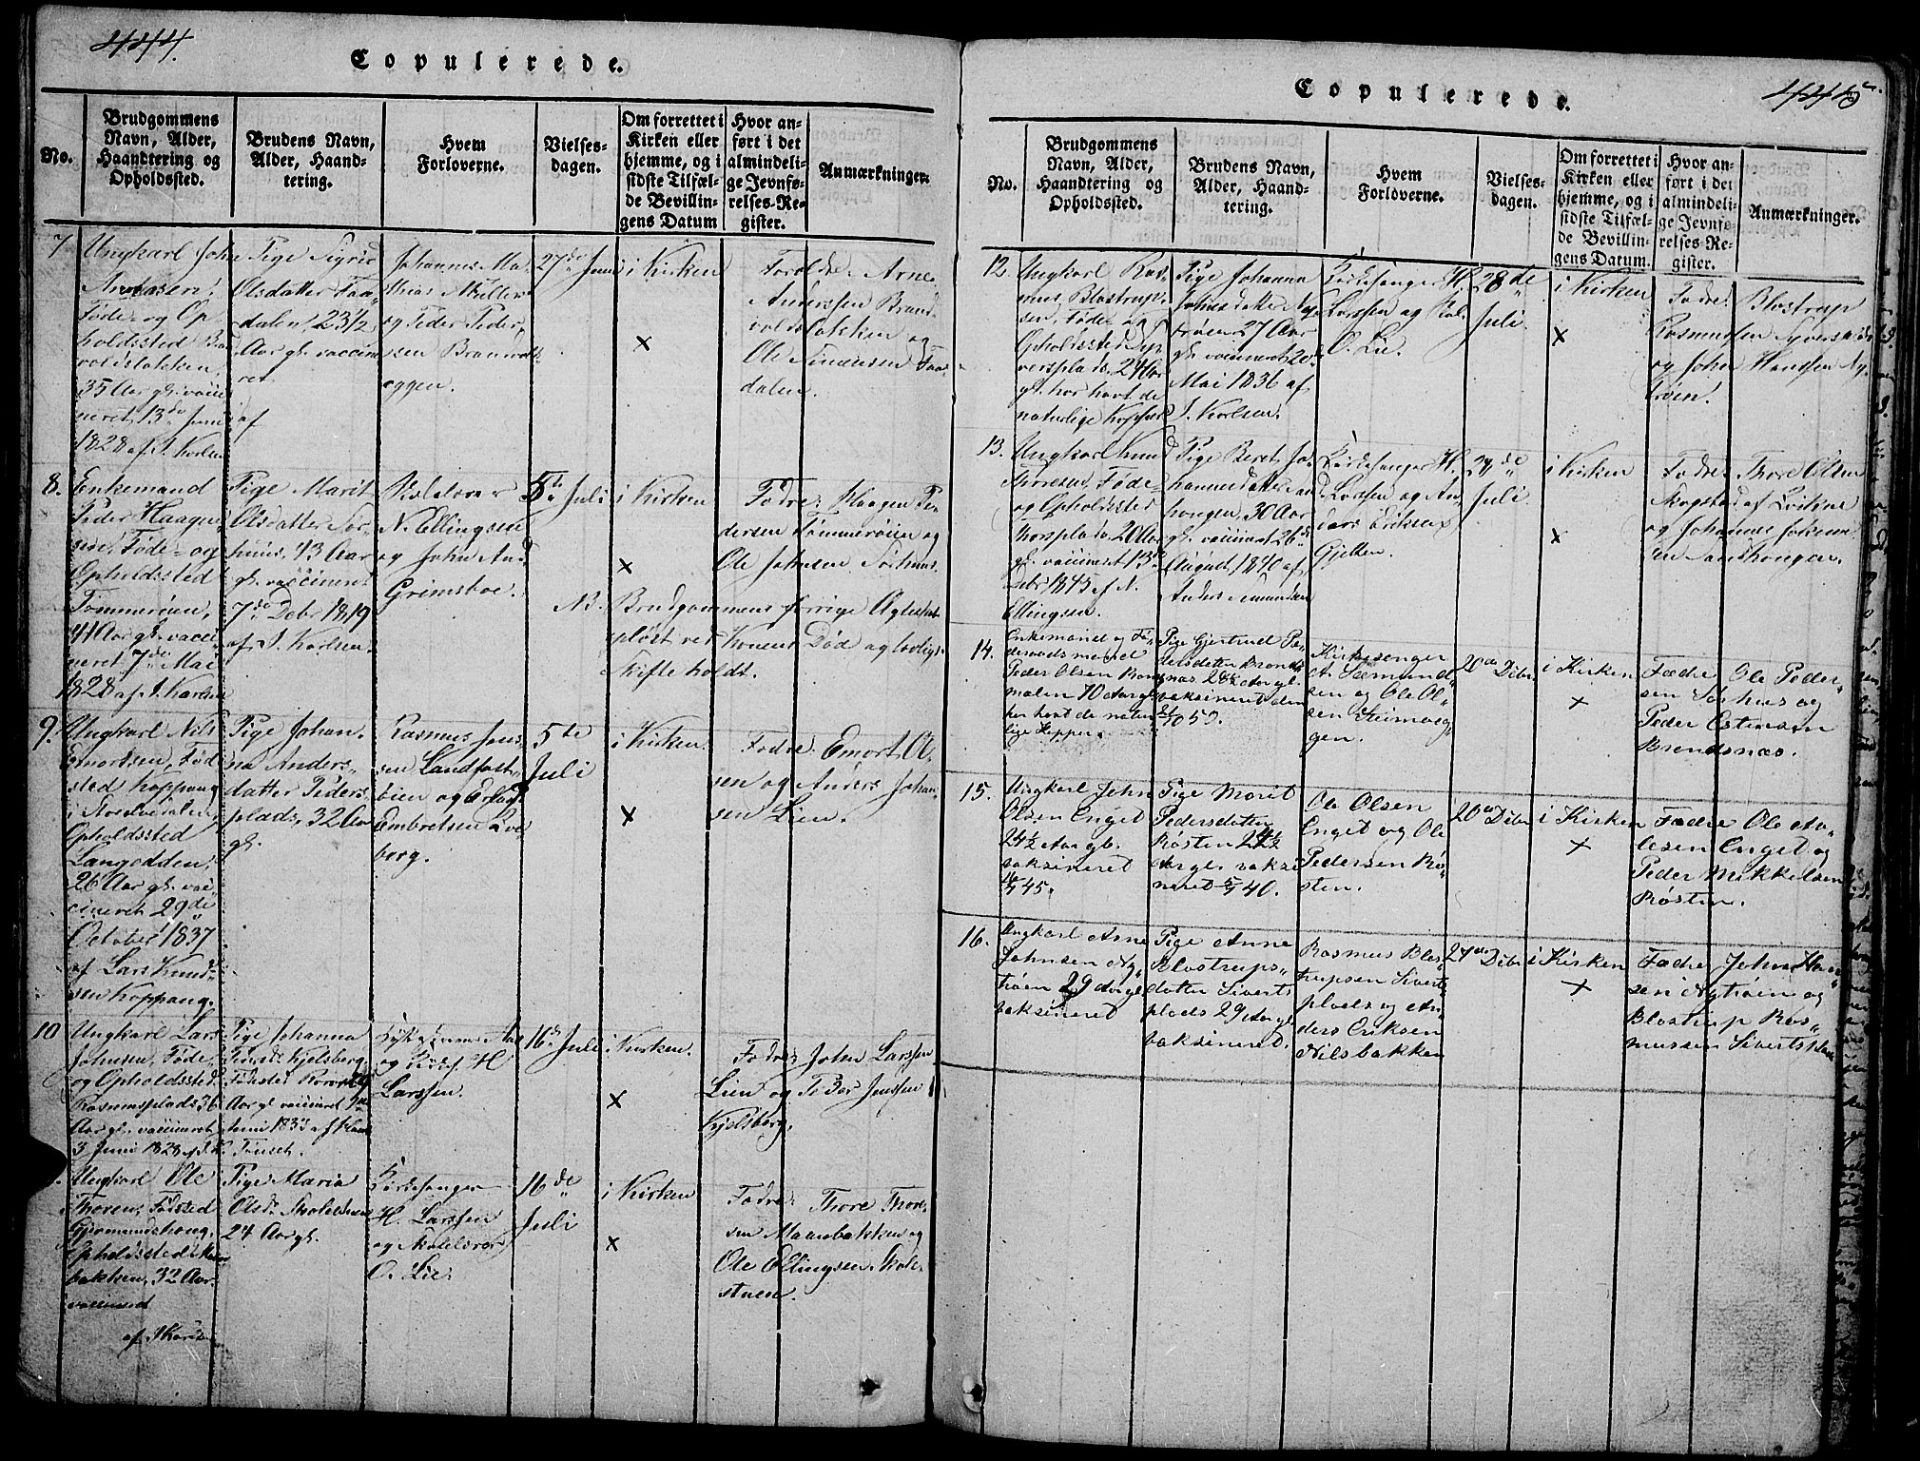 444.
Copulerede.
No.
Brudgommens
Navn, Alder,
Haandtering og
Opholdssted.
Brudens Navn,
Alder, Haand-
tering.
Hvem
Forloverne.
Vielses-
dagen.
Om forrettet i
Kirken eller
hjemme, og i
sidste Tilfæl-
de Bevillin-
gens Datum
Hvor an-
ført i det
almindeli-
ge Jevnfø-
relses-Re-
gister.
Anmærkninger.
7
Ungkarl John
Arnesen,
Føde- og Op
holdssted Bran
voldsløkken,
35 Aar gl. vacci
neret 13de Juni
1828 af J. Korlsen
Pige Sigrid
Olsdatter Faa
dalen, 23 1/2
Aar gl. vaccine
ret
af
Johannes Ma
thias Müller
og Peder Peder
sen Brannvolds
eggen.
27de Juni
i Kirken
x
Forældre: Arne
Anderssen Brand
voldsløkken og
Ole Simensen Faa
dalen.
8.
Enkemand
Peder Haagen
sen, Føde- og
Opholdssted
Tømmerøien,
41 Aar gl. vacci
neret 7de Mai
1828 af J. Karlsen
Pige Marit
Olsdatter Sør
huus, 43 Aar
gl. vaccineret
7de Debr 1819
af J. Korlsen.
Skolelærer
N. Ellingsen
og John And
Grimsboe.
5te Juli
i Kirken
x
Fædre: Haagen Pe
dersen Tømmerøien og
Ole Johnsen Sørhuus.
NB. Brudgommens forrige Ægteskab
opløst ved Konens Død og lovligt
Skifte holdt.
9.
Ungkarl Nils
Emortsen, Føde
sted Koppang
i Storelvedalen,
Opholdssted
Langodden,
26 Aar gl. vac
cineret 29de
October 1837
af Lars Knud
sen Koppang.
Pige Johan
na Anders
datter Peders
plads, 32 Aar
gl.
Rasmus Jens
sen Landfast
øien og
Embretsen
borg.
5te
Juli
i Kirken.
x
Fædre: Emort Ol
sen og Anders Johan
sen Lien.
10
Ungkarl Lars
Johnsen, Føde
og Opholdssted
Rasmusplads 36
Aar gl. vaccineret
3 Juni 1828 af J. K.
Pige Johanna
Pedersd: Kjelsberg,
Fødested Røros 29
Aar gl. vaccineret
Juni 1833 af
Finset.
og Kirkes. H
Larssen.
16de Juli
i Kirken.
x
Fædre: John Larssen
Lien og Peder Jenssen
Kjelsberg.
Ungkarl Ole
Thoresen, Fødested
Gjermundshoug,
Opholdssted
bakken, 32 Aar.
vaccineret
af J Korlsen
Pige Maria
Olsd. Stolestuen
24 Aar gl.
Kirkesanger
H. Larssen
og Skolelærer
O. Lie.
16de
Juli
i Kirken
x
Fædre: Thore Thore
sen Maanebakken og
Ole Ellingsen Stole
stuen.
Copulerede.
445.
No.
Brudgommens
Navn, Alder,
Haandtering og
Opholdssted.
Brudens Navn,
Alder, Haand-
tering.
Hvem
Forloverne.
Vielses-
dagen.
Om forrettet i
Kirken eller
hjemme, og i
sidste Tilfæl-
de Bevillin-
gens Datum.
Hvor an-
ført i det
almindeli-
ge Jevnfø-
relses-Re-
gister.
Anmærkninger.
12.
Ungkarl Ras
mus Blostrup
sen, Føde og
Opholdssted Sy
versplads, 24 Aar
gl. har havt de
naturlige Kopper
Pige Johanna
Johnsdatter Ny
trøen 27 Aar
gl. vaccineret 20de
Mai 1836 af
J. Korlsen.
Kirkesanger H.
Larssen og
O. Lie.
28de
Juli.
i Kirken
x
Fædre: Blostrup
Rasmussen Syversplads
og John Hansen Ny
trøen.
13.
Ungkarl Knud
Thoresen, Føde
og Opholdssted
Thorsplads, 20 Aar
gl. vaccineret 13de
Debr 1845 af N.
Ellingsen.
Pige Beret Jo
hannesdatter San
hougen, 30 Aar
gl. vaccineret 26de
August 1840 af
Anders Amundsen
Kirkesanger H.
Larssen og An
ders Eriksen
Gjelten.
28de
Juli
i Kirken
x
Fædre: Thore Olsen
Skogstad af Lesine
og Johannes Johnsen
Sandhougen.
14.
Enkemand og Fø
deraadsmand
Peder Olsen Ram
malen 70 Aar gl.
har havt de natur
lige Kopper.
Pige Gjertrud Pe
dersdatter Brends
næs 28 1/2 Aar gl.
vaksineret den
50.
Kirkesanger
A. Sæmund
sen og Ole Ol
sen Steimoeg
gen.
20de Debr
i Kirken
x
Fædre Ole Peder
sen Sørhus og
Peder Estensen
Brendsnæs.
15.
Ungkarl John
Olsen Enget
24 1/2 Aar gl.
vaksineret
45.
Pige Marit
Pedersdatter
Røsten 22 1/2
Aar gl. vaksi
neret 5/7 40.
Ole Olsen
Enget og Ole
Pedersen Rø
sten.
20de Debr
i Kirken
x
Fædre Ole Aa
lesen Enget og
Peder Mikkelsen
Røsten.
16.
Ungkarl Arne
Johnsen Ny
trøen 29 Aar gl.
vaksineret
Pige Anne
Blostrups
datter Siverts
plads 29 Aar gl
vaksineret.
Rasmus Blos
trupsen Siverts
plads og An
ders Eriksen
Nilsbakken
27de Debr
i Kirken
x
Fædre John Han
sen Nytrøen og
Blostrup Ras
mussen Sivertsplads